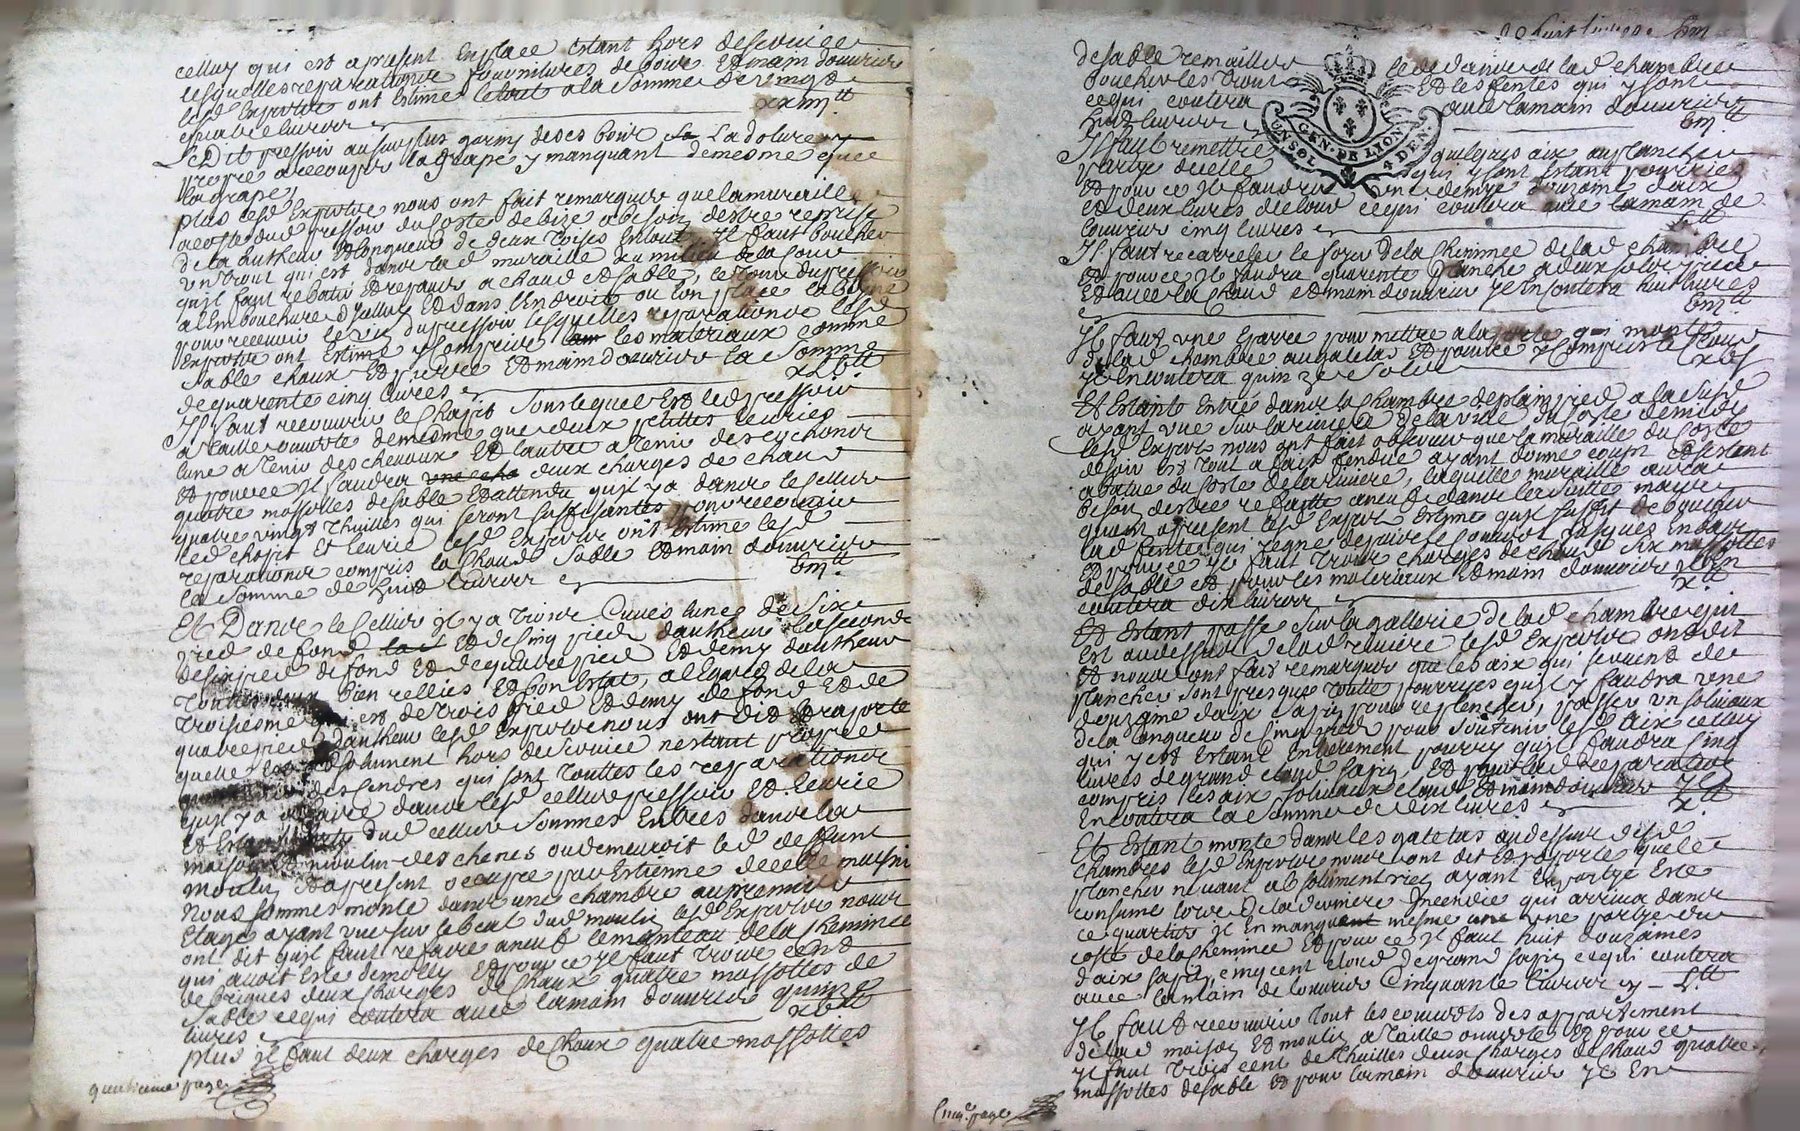 celluy qui est apresent En place estant hors de service
lesquelles reparations fournitures de bois Et main douvrier
lesd Expertz ont Estimé le tout a la somme de vingt
quatre livres xxiiij tt
Ledit pressoir au surplus garny de ses bois La dolure
propre a couper la grape y manquant de mesme que
la grape,
plus lesd Expertz nous ont fait remarquer que la muraille
a costé dud pressoir du costé de bize a besoin destre reprise
de la hutheur Et longueur de deux toises En tout Il faut boucher
un trout qui est dans lad muraille au milieu de la
quil faut rebatir Et repaver a chaud Et sable, le tour du pressoir
a lembouchure dycelluy Et dans lendroit ou lon place la benne
pour recevoir le vin du pressoir lesquelles reparations lesd
Expertz ont Estimé y compris les materiaux comme
sable chaux Et pierre Et main douvrier la somme
de quarente cinq livres xLv tt
Il faut recouvrir le chapit sous lequel Est led pressoir
a taille ouverte de mesme que deux petittes Ecuries
lune a tenir des chevaux Et lautre a tenir des cochons
Et pour ce Il faudra deux charges de chaux
quatre massottes de sable Et attendu quil y a dans le cellier
quatre vingt thuilles qui seront suffisantes pour recouvrir
led chapit Et Ecurie lesd Expertz ont Estimé lesd
reparations compris la chaud sable Et main douvrier
la somme de huit livres viij tt
Et Dans le cellier il y a trois Cuves lune de six
pied de fond Et de cinq pied dautheur la seconde
de six pied de fond Et de quatre pied Et demy dautheur
touttes deux bien relliées Et bon Estat, a legard de la
troisiesme qui est de trois pied Et demy de fond Et de
quatre pied dautheur lesd Expertz nous ont dit Et raporté
quelle Est absolument hors de service nestant propre
des cendres qui sont touttes les reparations
quil y a a faire dans lesd cellier pressoir Et Ecurie
Et Estant dud cellier sommes Entrés dans la
maison Et moulin des chenes ou demeuroit led deffunt
moulin Et apresent occupée par Estienne
Nous sommes monté dans une chambre au premier
Etage ayant vue sur le beal dud moulin lesd Expertz nous
ont dit quil faut refaire a neuf le manteau de la cheminée
qui avoit Esté demolly Et pour ce Il faut trois cent
de briques deux charges de chaux quatre massottes de
sable ce qui coutera avec la main douvrier quinze
livres xv tt
plus Il faut deux charges de chaux quatre massottes
quatrieme page
de sable remailler le devant de lad chambre
boucher les trout Et les fentes qui y sont
ce qui coutera avec la main douvrier
huit livres viij tt
GEN. DE LION
UN SOL 4 DEN.
Il faut remettre quelques aix au plancher
partye dicelle qui y sont Estant pourries
Et pour ce Il faudra une demie douzaine daix
Et deux livres de cloud ce qui coutera avec la main de
louvrier cinq livres v tt
Il faut recarreler le foyer de la cheminée de lad chambre
Et pour ce Il faudra quarente planche a deux sols piece
Et avec la chaud Et main douvrier Il en coutera huit livres
viij tt
Il faut une Eparre pour mettre a la porte qui monte
de lad chambre au galetas Et pour ce y compris le cloud
Il En coutera quinze sols xv s
Et Estants Entré dans la chambre de plain pied a la susd
ayant vue sur la riviere Et la ville du costé de midy
lesd Expertz nous ont fait observer que la muraille du costé
de soir Est tout a fait fendue ayant donné coup Et sestant
abatue du costé de la riviere, laquelle muraille aura
besoin destre refaitte a neuf dans la suitte mais
quant apresent lesd Expertz Estime quil suffit de boucher
lad fente qui regne depuis le couvert jusques En bas
Et pour ce Il faut trois charges de chaud six massottes
de sable Et pour les materiaux Et main douvrier Il En
coutera dix livres x tt
Et Estant passés sur la gallerie de lad chambre qui
Est audessus de lad riviere lesd Expertz ont dit
Et nous ont fait remarquer que les aix qui servent de
plancher sont presque touttes pourries quil y faudra une
douzaine daix sapin pour replancher, passer un soliveaux
de la longueur de cinq pied pour soutenir lesd aix celluy
qui y est Estant Entierement pourry quil faudra cinq
livres de grand cloud sapin, Et pour lad reparation
compris les aix soliveaux cloud Et main douvrier Il
En coutera la somme de dix livres x tt
Et Estant monté dans les galetas audessus desd
chambres lesd Expertz nous ont dit Et raporté que le
plancher ne vaut absolument rien ayant En partye Esté
consumé lors de la derniere Incendie qui arriva dans
ce quartier Il En manquant mesme une partye du
costé de la cheminée Et pour ce Il faut huit douzaines
daix sapin, cinq cent cloud de grand sapin ce qui coutera
avec la main de louvrier Cinquante livres L tt
Il faut recouvrir tout les couverts des appartement
de lad maison Et moulin a taille ouverte Et pour ce
Il faut trois cent de thuilles deux charges de chaud quatre
massottes de sable Et pour la main douvrier Il En
Cinq.e page